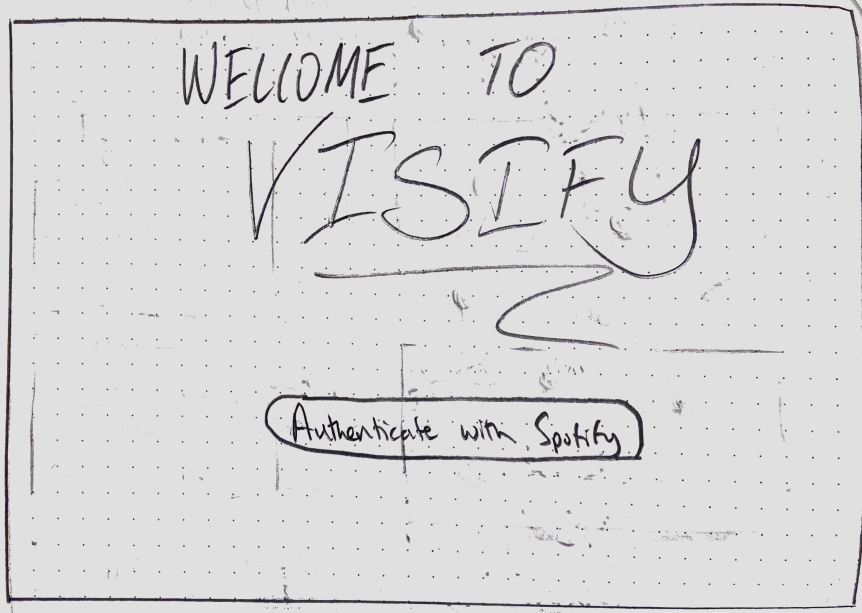 WELCOME TO
VISIFY
Authenticate with Spotify